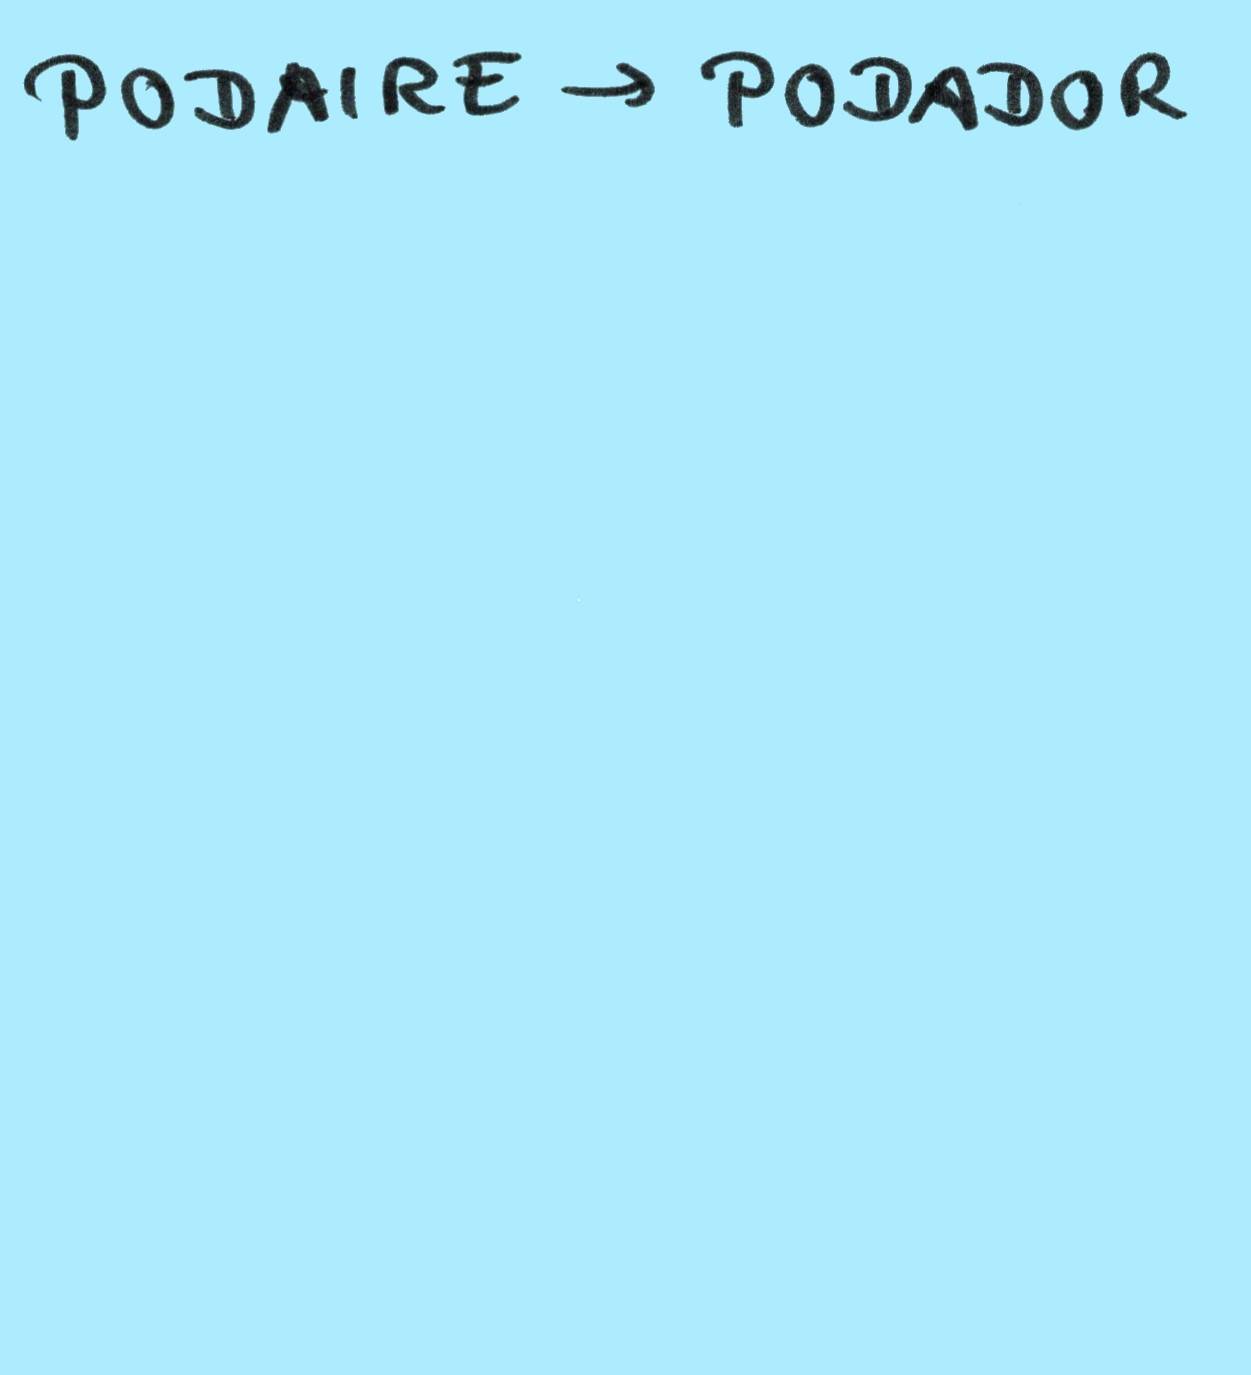 PODAIRE → PODADOR